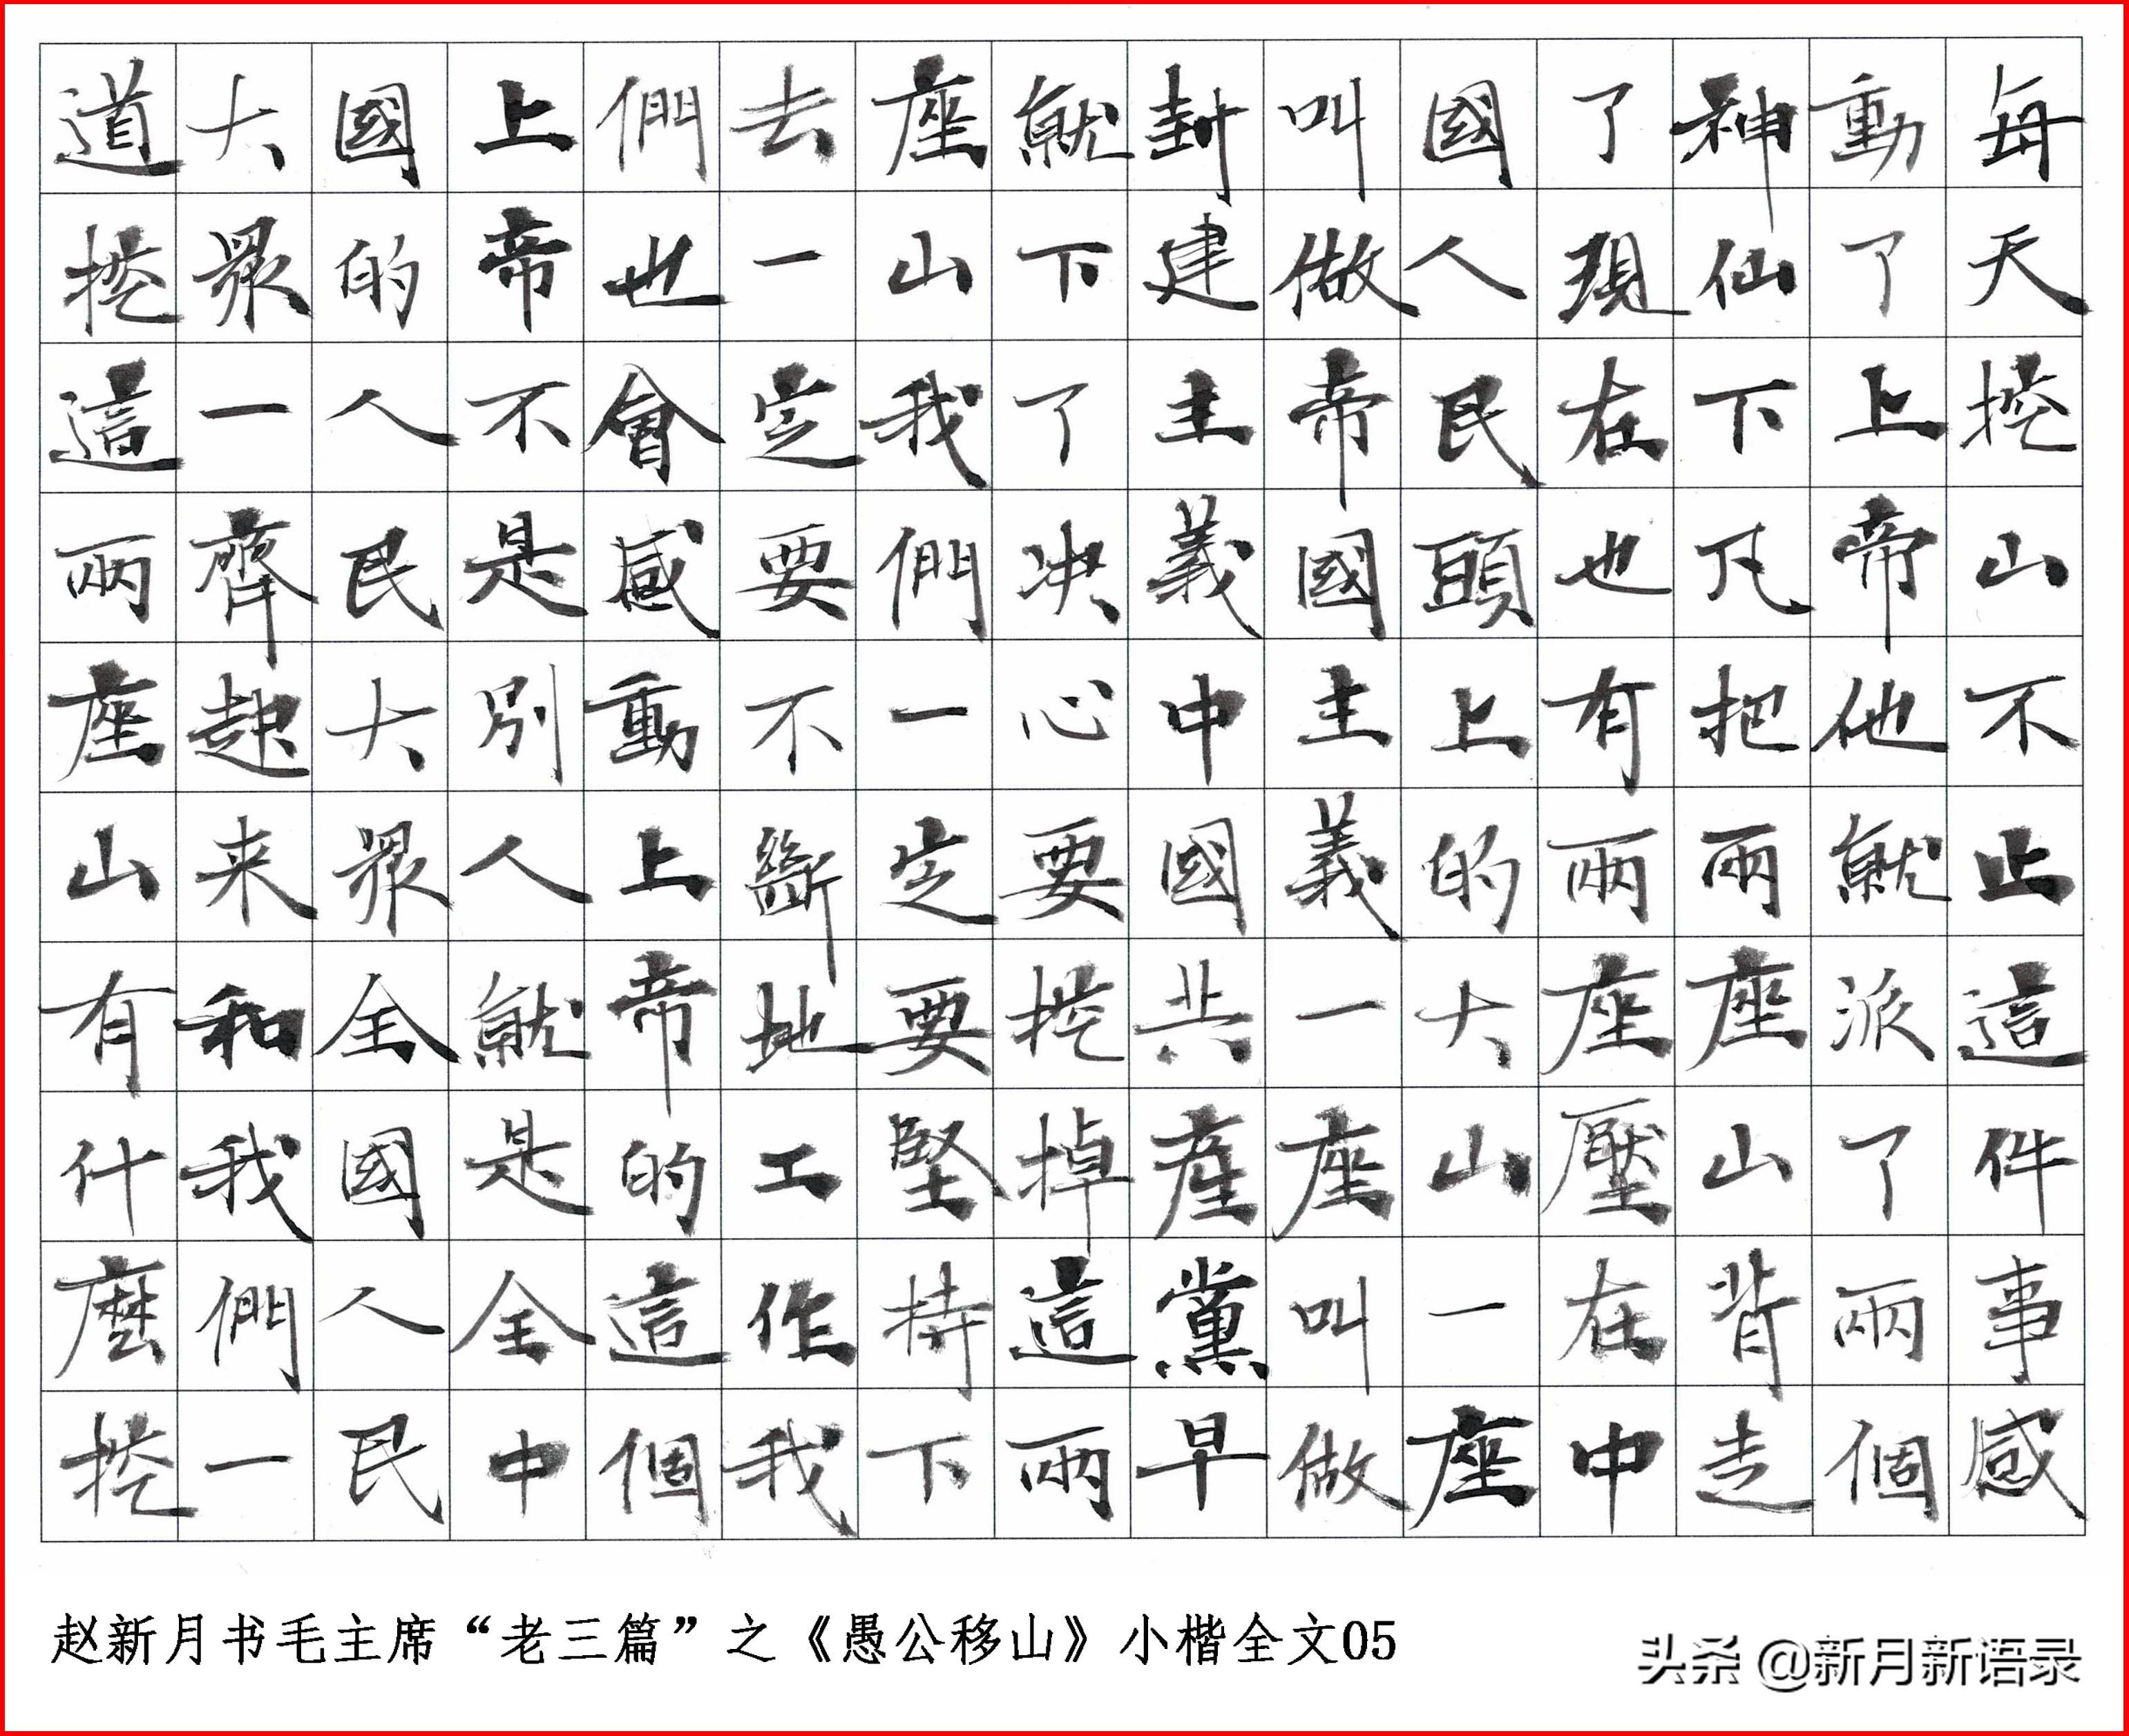 每天挖山不止這件事感
動了上帝他就派了兩個
神仙下凡把兩座山背走
了現在也有兩座壓在中
國人民頭上的大山一座
叫做帝國主義一座叫做
封建主義中國共產黨早
就下了决心要挖掉這兩
座山我們一定要堅持下
去一定要不斷地工作我
們也會感動上帝的這個
上帝不是別人就是全中
國的人民大眾全國人民
大眾一齊起来和我們一
道挖這兩座山有什麼挖
赵新月书毛主席“老三篇”之《愚公移山》小楷全文05
头条 @新月新语录